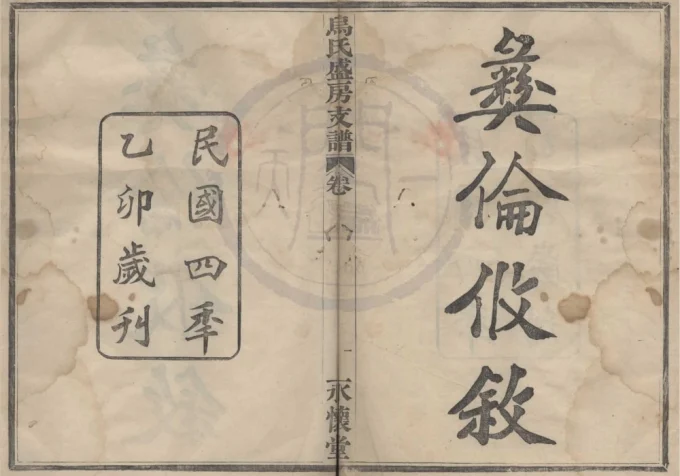 彝倫攸敘
烏氏盛房支譜
卷
一
永懷堂
民國四年
乙卯歲刊